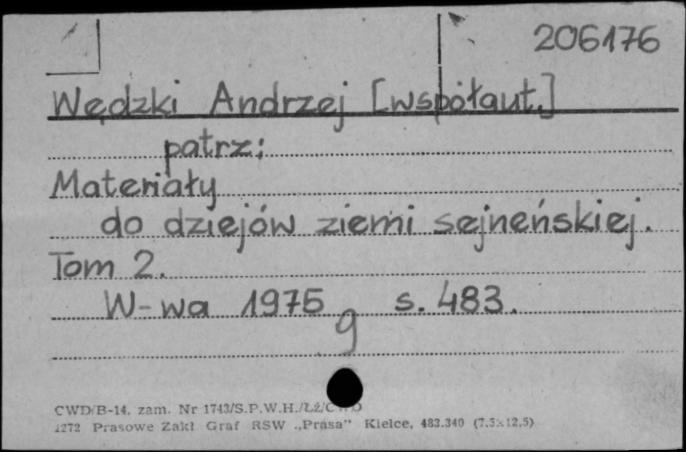 206176
Wędzki Andrzej [współaut.]
patrz:
Materiały
do dziejów ziemi sejneńskiej.
Tom 2.
W-wa 1975 s. 483.
g
CWD/B-14. zam. Nr 1743/S.P.W.H./Łż/CWD
1272 Prasowe Zakł Graf RSW „Prasa" Kielce, 483.340 (7.5×12.5)